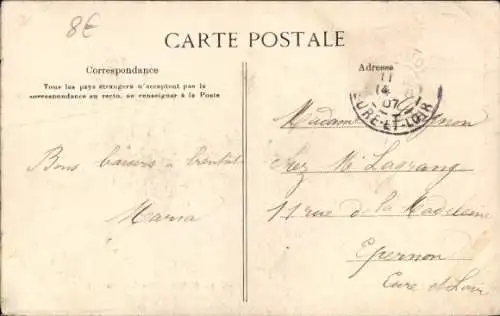 8€
CARTE POSTALE
Correspondance
Tous les pays étrangers n'acceptent pas la
correspondance au recto, se renseigner à la Poste
Bons baisers à bientôt
Maria
Adresse
11
14
07
EURE-ET-LOIR
Madame
chez Mr Lagrang
11 rue de la Madeleine
Epernon
Eure et Loir